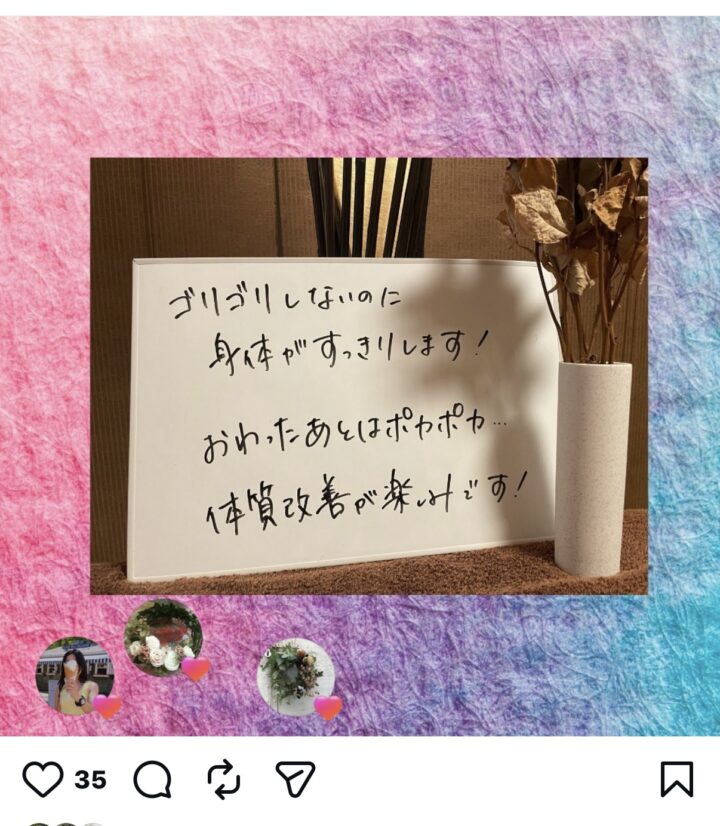 ゴリゴリしないのに
身体がすっきりします！
おわったあとはポカポカ…
体質改善が楽しみです！
35